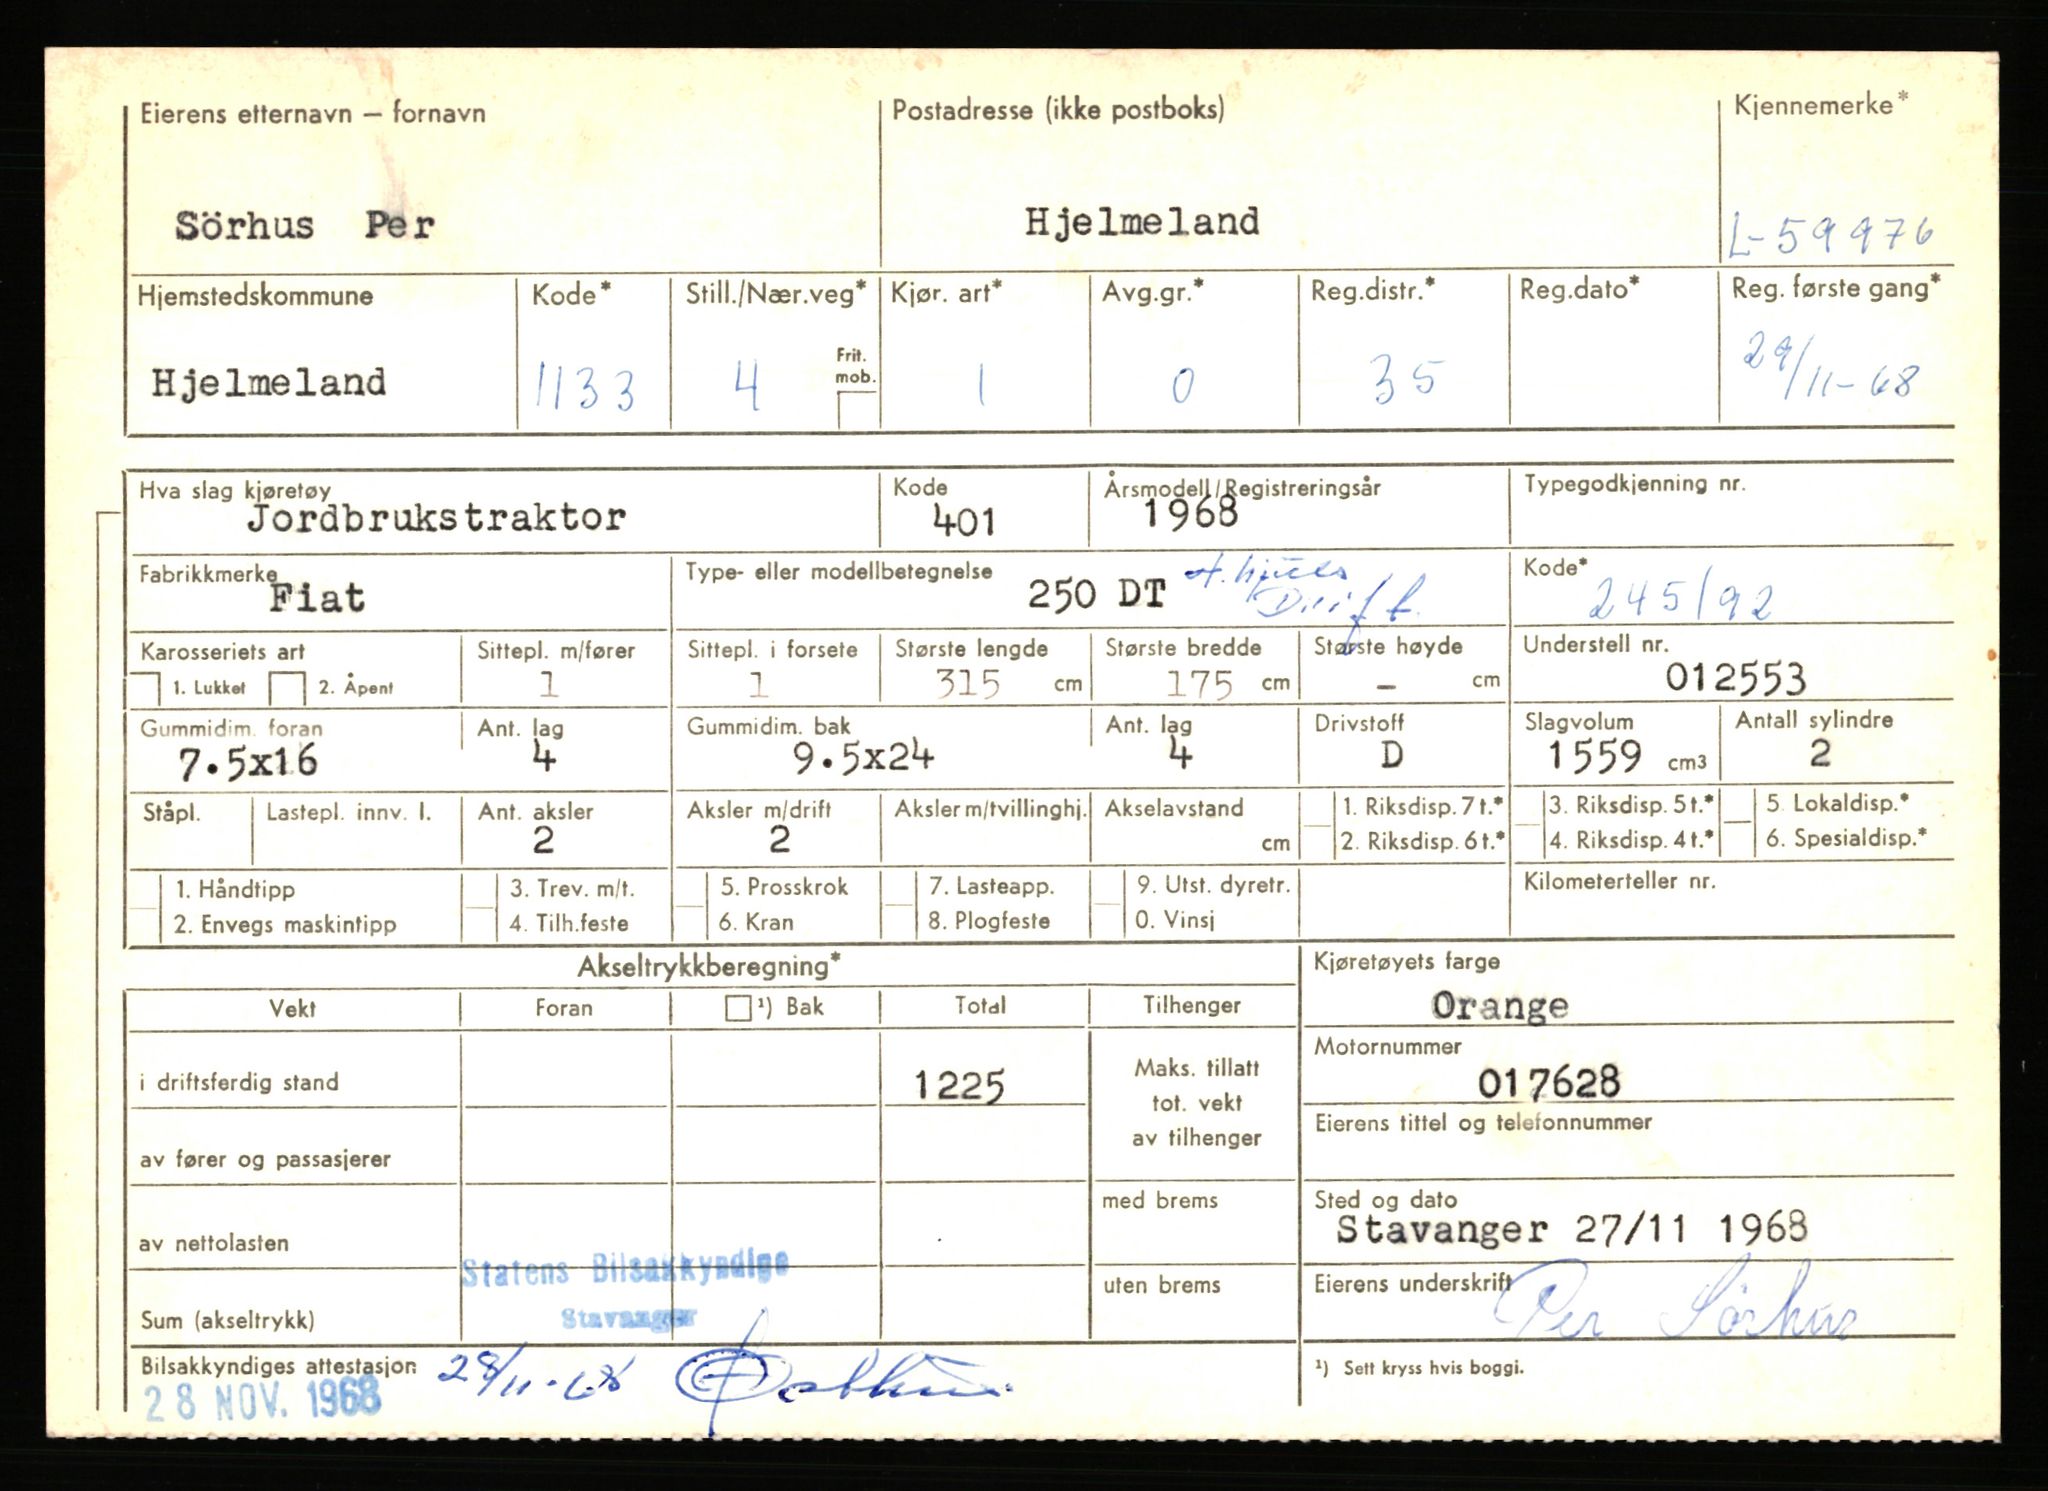 Eierens etternavn — fornavn Postadresse (ikke postboks) Kjennemerke*
Sörhus Per Hjelmeland L-59976
Hjemstedskommune Kode* Still./Nær.veg* Kjør. art* Avg.gr.* Reg.distr.* Reg.dato* Reg. første gang*
Frit. mob.
Hjelmeland 1133 4 1 0 35 29/11-68
Hva slag kjøretøy Kode Årsmodell/Registreringsår Typegodkjenning nr.
Jordbrukstraktor 401 1968
Fabrikkmerke Type- eller modellbetegnelse Kode*
Fiat 250 DT 4. hjuls Drift. 245/92
Karosseriets art Sittepl. m/fører Sittepl. i forsete Største lengde Største bredde Største høyde Understell nr.
1. Lukket 2. Åpent 1 1 315 cm 175 cm – cm 012553
Gummidim. foran Ant. lag Gummidim. bak Ant. lag Drivstoff Slagvolum Antall sylindre
7.5x16 4 9.5x24 4 D 1559 cm3 2
Ståpl. Lastepl. innv. l. Ant. aksler Aksler m/drift Aksler m/tvillinghj. Akselavstand 1. Riksdisp. 7 t.* 3. Riksdisp. 5 t.* 5. Lokaldisp.*
2 2 cm 2. Riksdisp. 6 t.* 4. Riksdisp. 4 t.* 6. Spesialdisp.*
1. Håndtipp 3. Trev. m/t. 5. Prosskrok 7. Lasteapp. 9. Utst. dyretr. Kilometerteller nr.
2. Envegs maskintipp 4. Tilh.feste 6. Kran 8. Plogfeste 0. Vinsj
Akseltrykkberegning* Kjøretøyets farge
Vekt Foran ¹) Bak Total Tilhenger Orange
Motornummer
i driftsferdig stand 1225 Maks. tillatt tot. vekt av tilhenger 017628
Eierens tittel og telefonnummer
av fører og passasjerer
med brems Sted og dato
av nettolasten Stavanger 27/11 1968
Statens Bilsakkyndige
uten brems Eierens underskrift
Sum (akseltrykk) Stavanger Per Sörhus
Bilsakkyndiges attestasjon 28/11-68 ¹) Sett kryss hvis boggi.
28 NOV. 1968